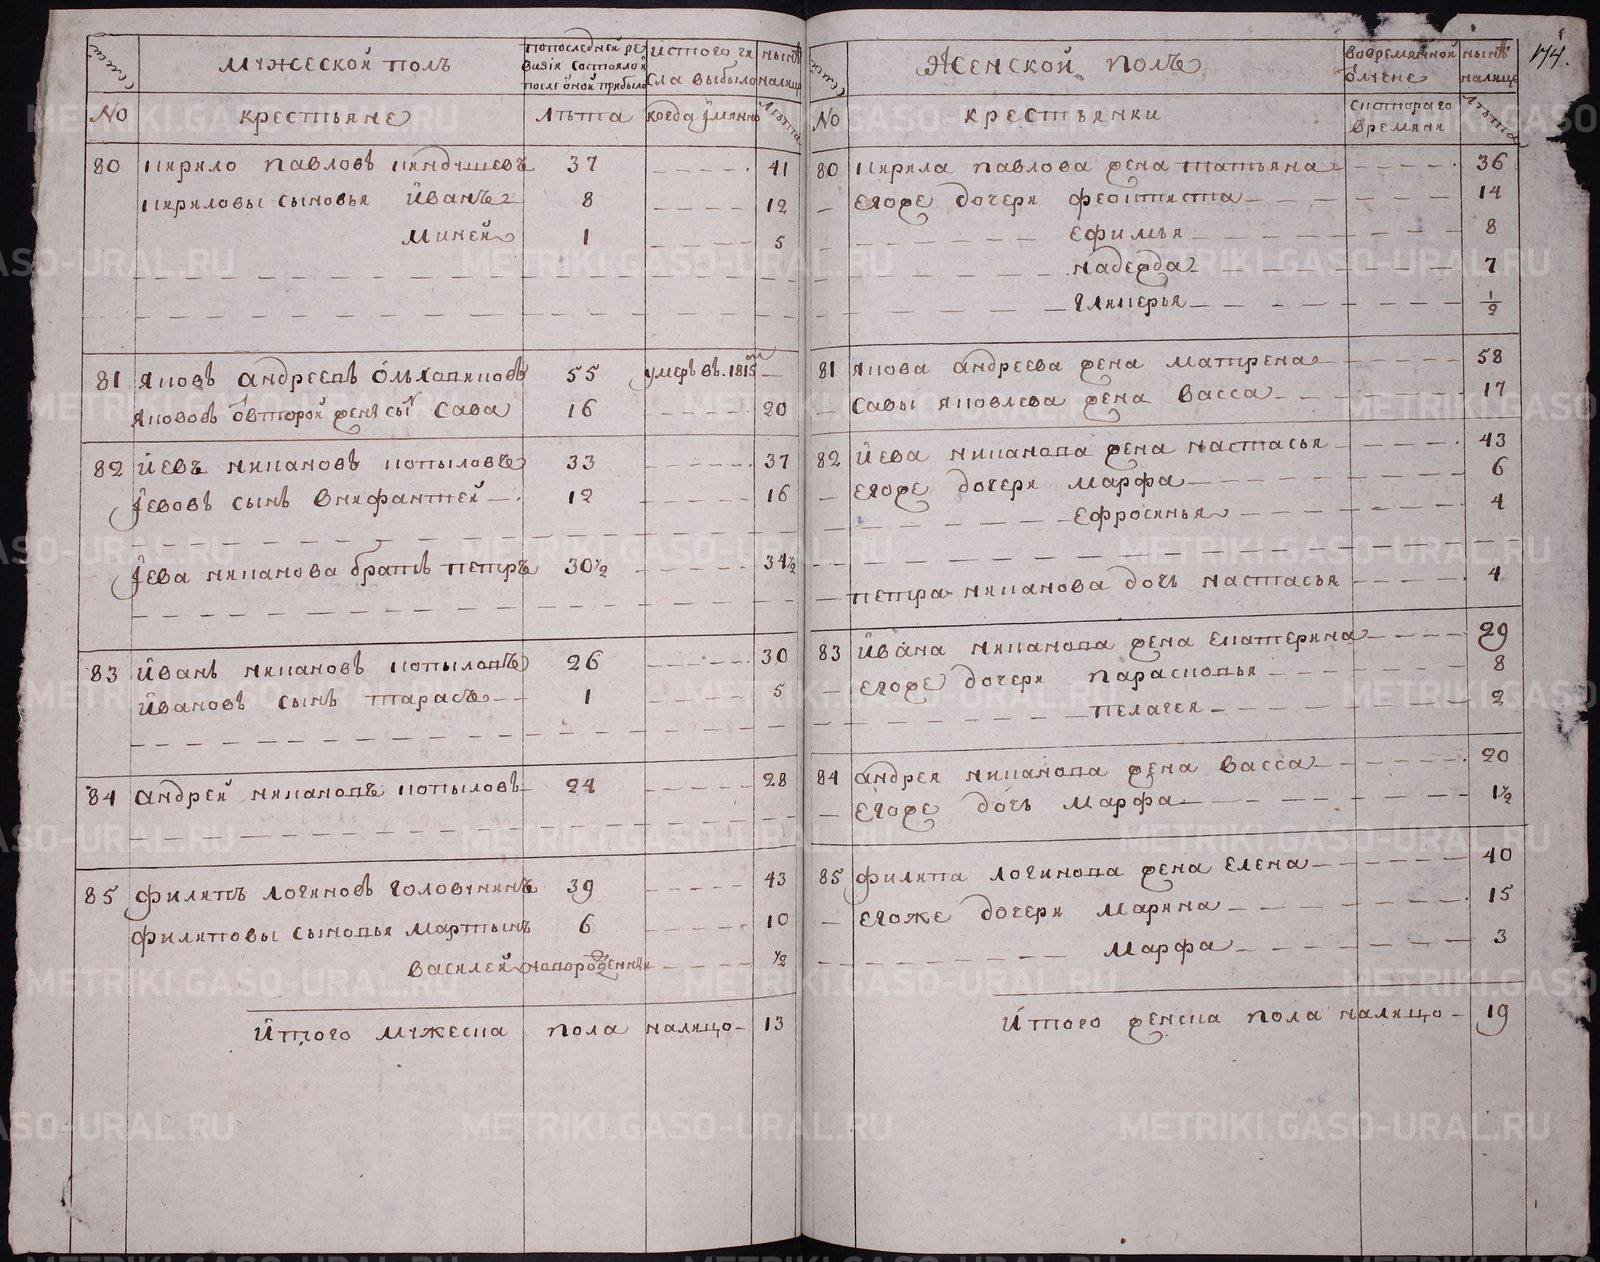 семьи
Мужеской полъ
По последней ре
визiи состояло и
после оной прибыло
Из того чи
сла выбыло
ныне
налицо
No
крестьяне
Лѣта
когда имянно
Лѣта
80 Кирило Павловъ 37 41
Кириловы сыновья Иванъ 8 12
Миней 1 5
81 Яковъ Андреевъ 55 умеръ въ 1815ом
Яковов от второй жены сын Сава 16 20
82 Иевъ Никановъ Копыловъ 33 37
Iевовъ сынъ Внифантей 12 16
Iева Никанова братъ Петръ 30½ 34½
83 Иванъ Никановъ Копыловъ 26 30
Ивановъ сынъ Тарасъ 1 5
84 Андрей Никановъ Копыловъ 24 28
85 Филипъ Логиновъ Головчинъ 39 43
Филиповы сыновья Мартынъ 6 10
Василей новорожденный ½
Итого мужеска пола налицо 13
174.
семьи
Женской полъ
Во временной
отлучке
ныне
налицо
No
крестьянки
с котораго
времяни
Лѣта
80 Кирила Павлова жена Татьяна 36
Егоже дочери Феоктиста 14
Ефимья 8
Надежда 7
Гликерья ½
81 Якова Андреева жена Матрена 58
Савы Яковлева жена Васса 17
82 Иева Никанова жена Настасья 43
Егоже дочери Марфа 6
Ефросинья 4
Петра Никанова дочь Настасья 4
83 Ивана Никанова жена Екатерина 29
Егоже дочери Парасковья 8
Пелагея 2
84 Андрея Никанова жена Васса 20
Егоже дочь Марфа 1½
85 Филипа Логинова жена Елена 40
Егоже дочери Марина 15
Марфа 3
Итого женска пола налицо 19
METRIKI.GASO-URAL.RU